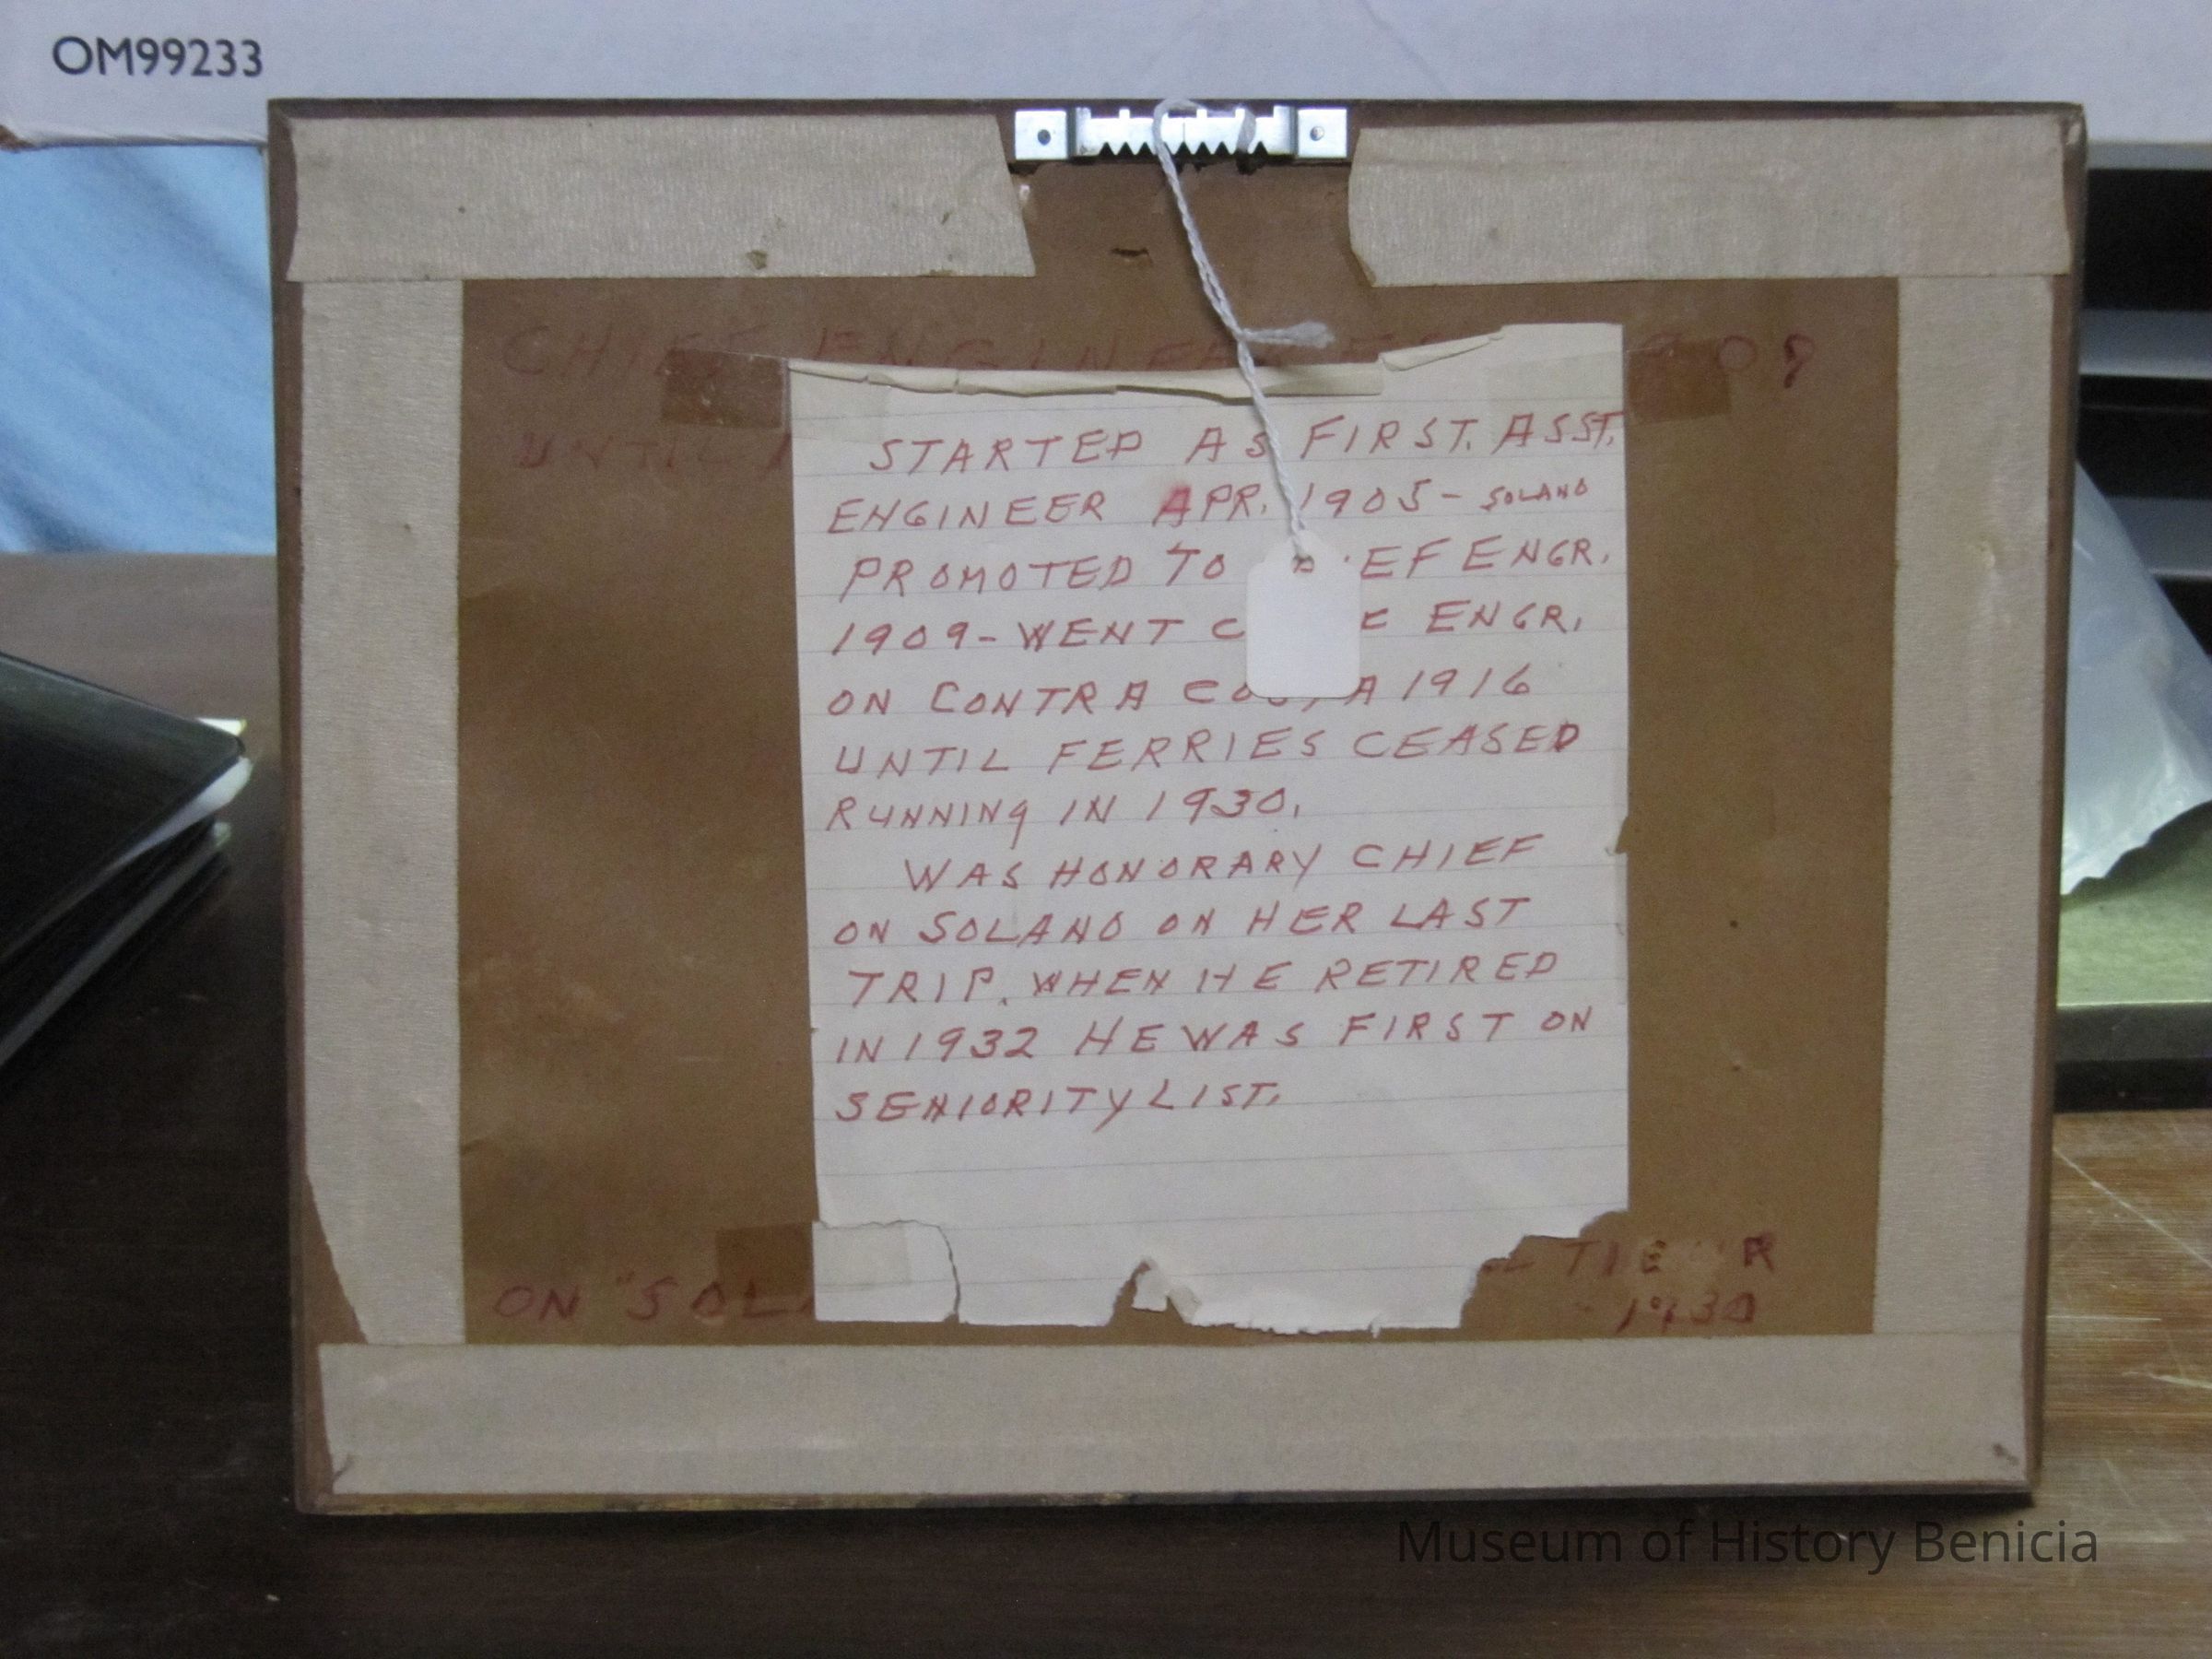 OM99233
CHIEF ENGINEER
UNTIL
STARTED AS FIRST. ASST.
ENGINEER APR. 1905 - SOLANO
PROMOTED TO ENGR.
1909 - WENT ENGR.
ON CONTRA COSTA 1916
UNTIL FERRIES CEASED
RUNNING IN 1930.
WAS HONORARY CHIEF
ON SOLANO ON HER LAST
TRIP. WHEN HE RETIRED
IN 1932 HE WAS FIRST ON
SENIORITY LIST.
ON "SOL
1930
Museum of History Benicia